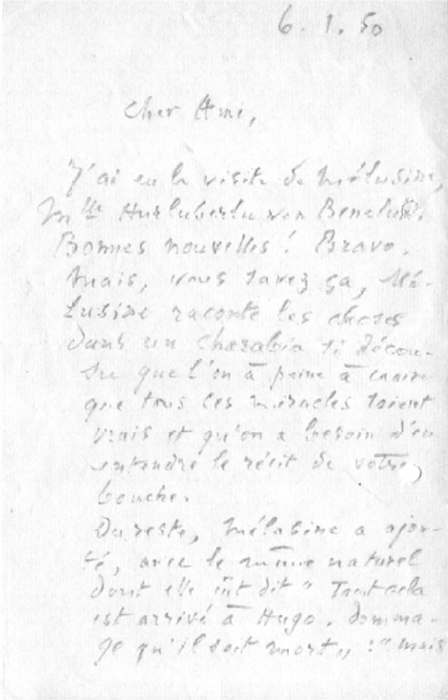 6.1.50
Cher Ami,
J'ai eu la visite de Mélusine,
Mlle Hurluberlu von Benelus.
Bonnes nouvelles ! Bravo.
Mais, vous savez ça, Mé-
lusine raconte les choses
dans un charabia si décou-
su que l'on a peine à croire
que tous ces miracles soient
vrais et qu'on a besoin d'en
entendre le récit de votre
bouche.
Du reste, Mélusine a ajou-
té, avec le même naturel
dont elle eût dit " Tout cela
est arrivé à Hugo. Domma-
ge qu'il soit mort„ : " mais